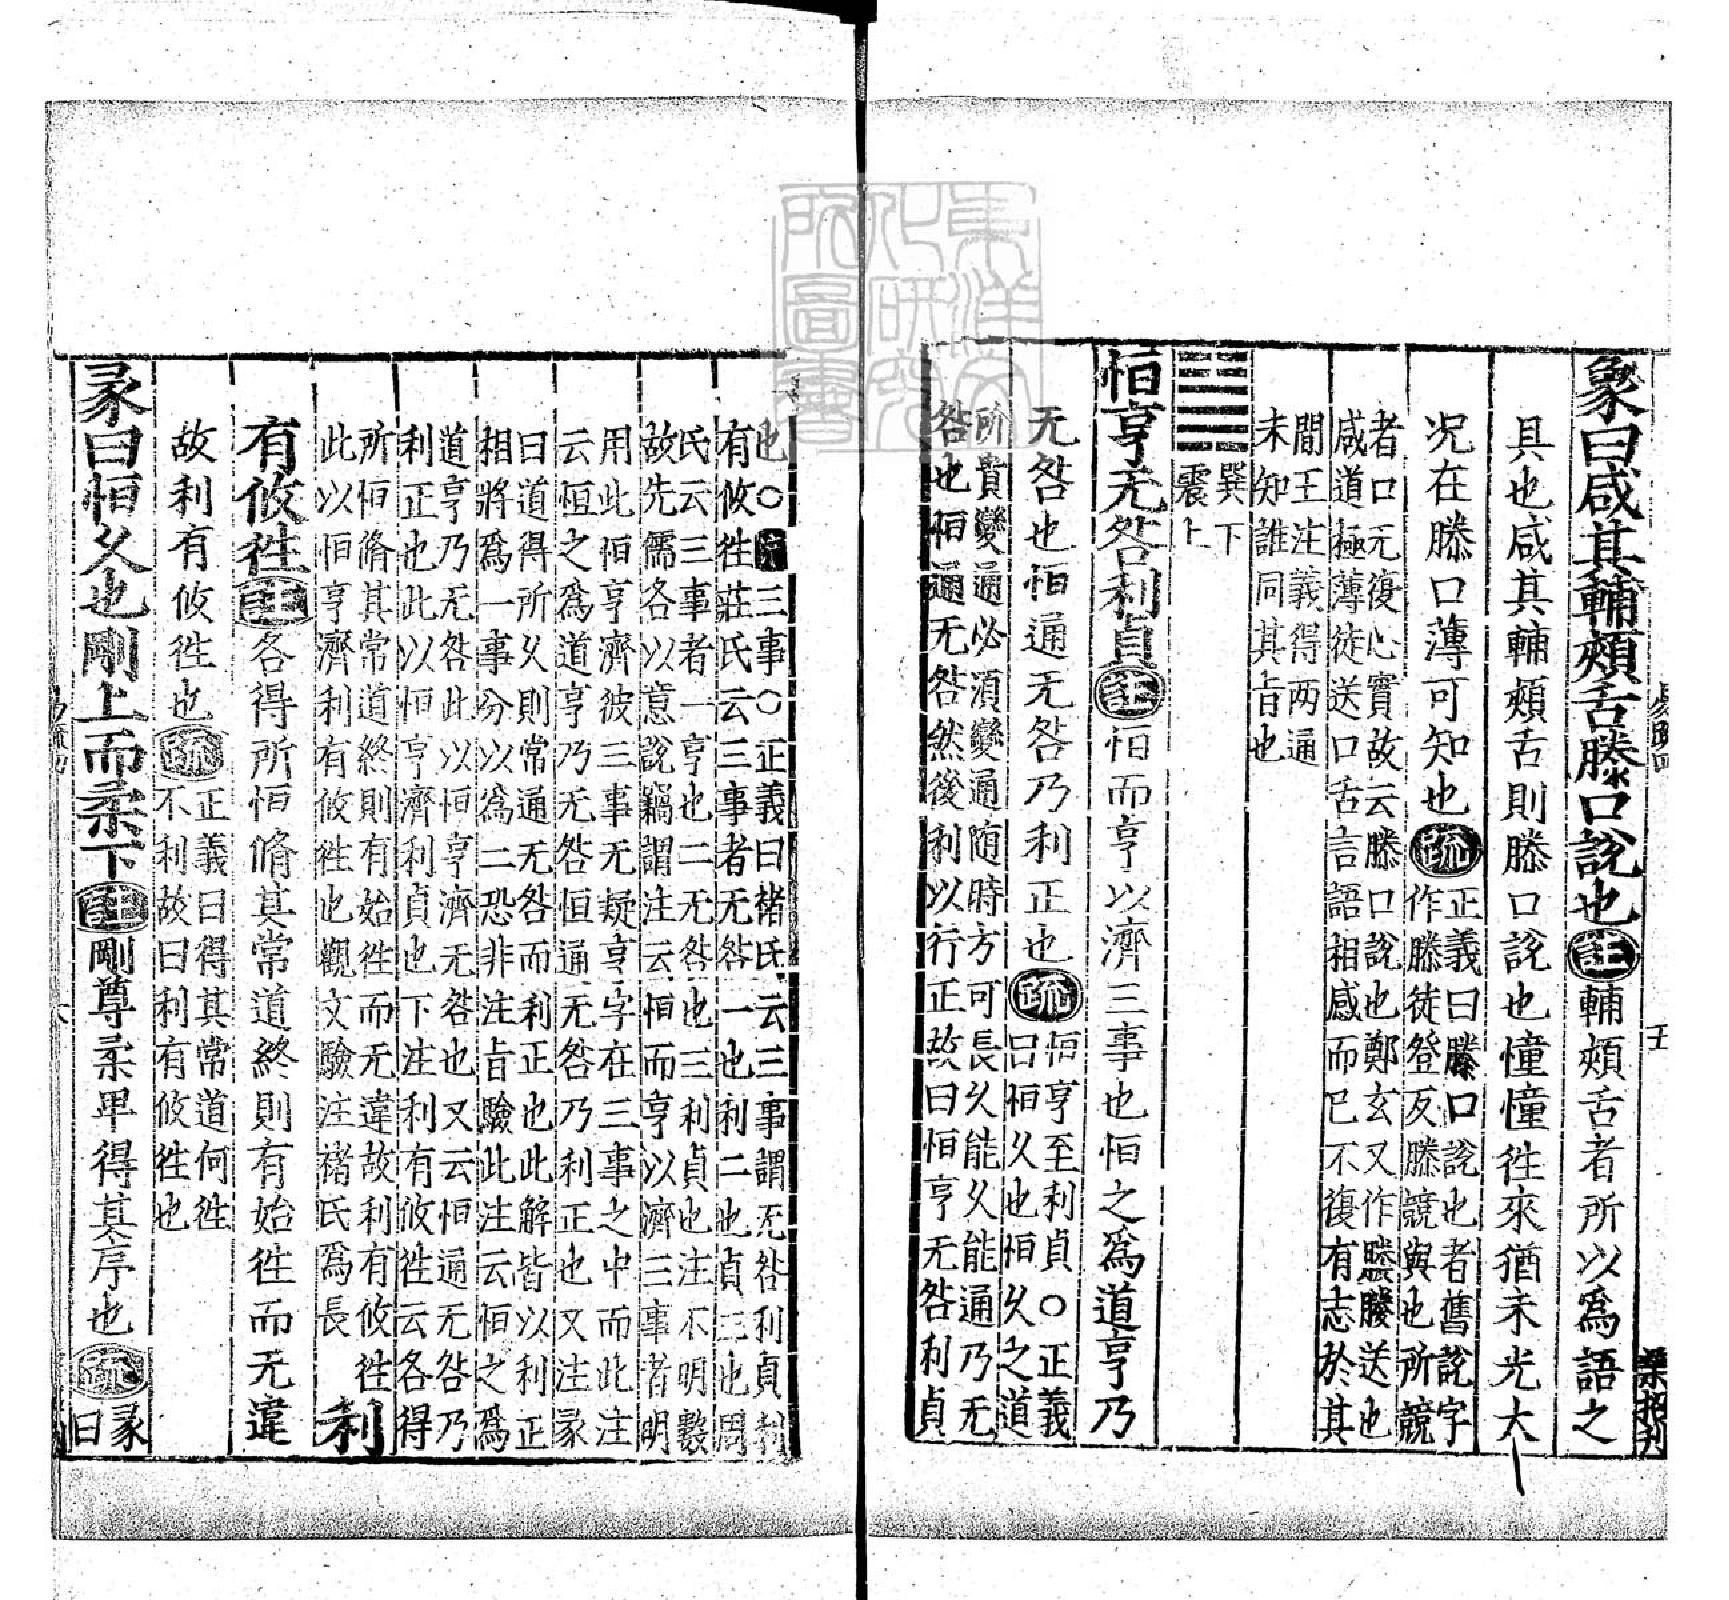 象曰咸其輔頰舌滕口說也注輔頰舌者所以爲語之
具也咸其輔頰舌則滕口說也憧憧徃來猶未光大
况在滕口薄可知也疏正義曰滕口說也者舊說字
作滕徒登反滕競與也所競
者口无復心實故云滕口說也鄭玄又作媵媵送也
咸道極薄徒送口舌言語相感而已不復有志於其
間王注義得两通
未知誰同其旨也
巽下
震上
恒亨无咎利貞注恒而亨以濟三事也恒之爲道亨乃
无咎也恒通无咎乃利正也疏恒亨至利貞○正義
曰恒久也恒久之道
所貴變通必湏變通随時方可長久能久能通乃无
咎也恒通无咎然後利以行正故曰恒亨无咎利貞
也○注三事○正義曰褚氏云三事謂无咎利貞利
有攸徃莊氏云三事者无咎一也利二也貞三也周
氏云三事者一亨也二无咎也三利貞也注不明數
故先儒各以意說竊謂注云恒而亨以濟三事者明
用此恒亨濟彼三事无疑亨字在三事之中而此注
云恒之爲道亨乃无咎恒通无咎乃利正也又注彖
曰道得所久則常通无咎而利正也此解皆以利正
相將爲一事分以爲二恐非注旨驗此注云恒之爲
道亨乃无咎此以恒亨濟无咎也又云恒通无咎乃
利正也此以恒亨濟利貞也下注利有攸徃云各得
所恒脩其常道終則有始徃而无違故利有攸徃
此以恒亨濟利有攸徃也觀文驗注褚氏爲長
利
有攸徃注各得所恒脩其常道終則有始徃而无違
故利有攸徃也疏正義曰得其常道何徃
不利故曰利有攸徃也
彖曰恒久也剛上而柔下注剛尊柔卑得其序也疏彖
曰